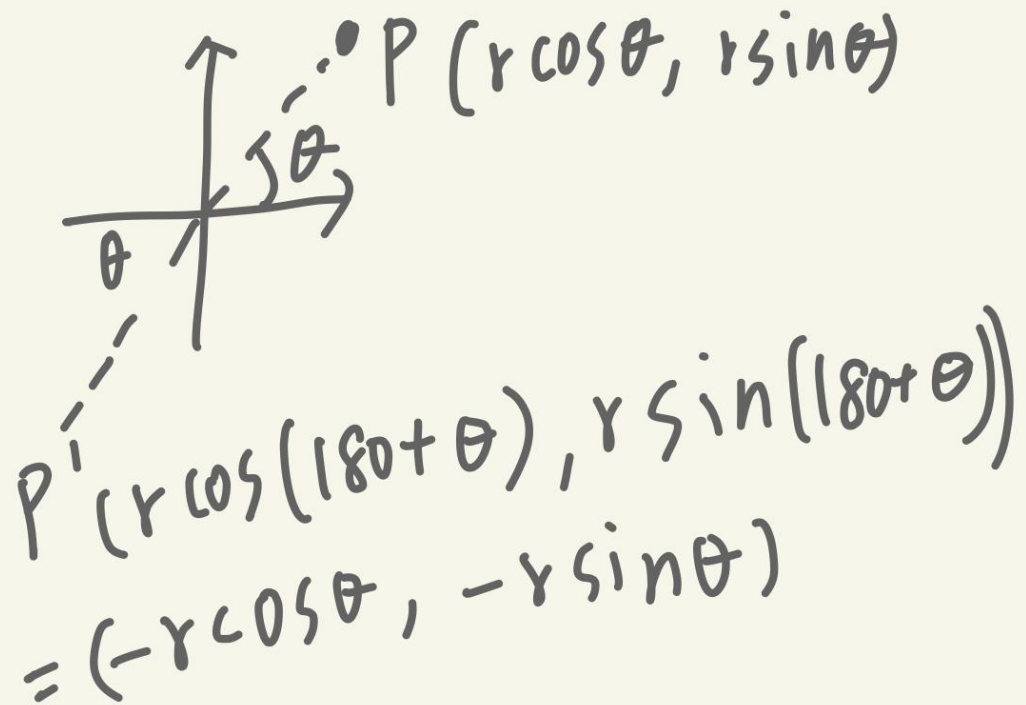 P (r cosθ, r sinθ)
θ
θ
P' (r cos(180+θ), r sin(180+θ))
= (-r cosθ, -r sinθ)